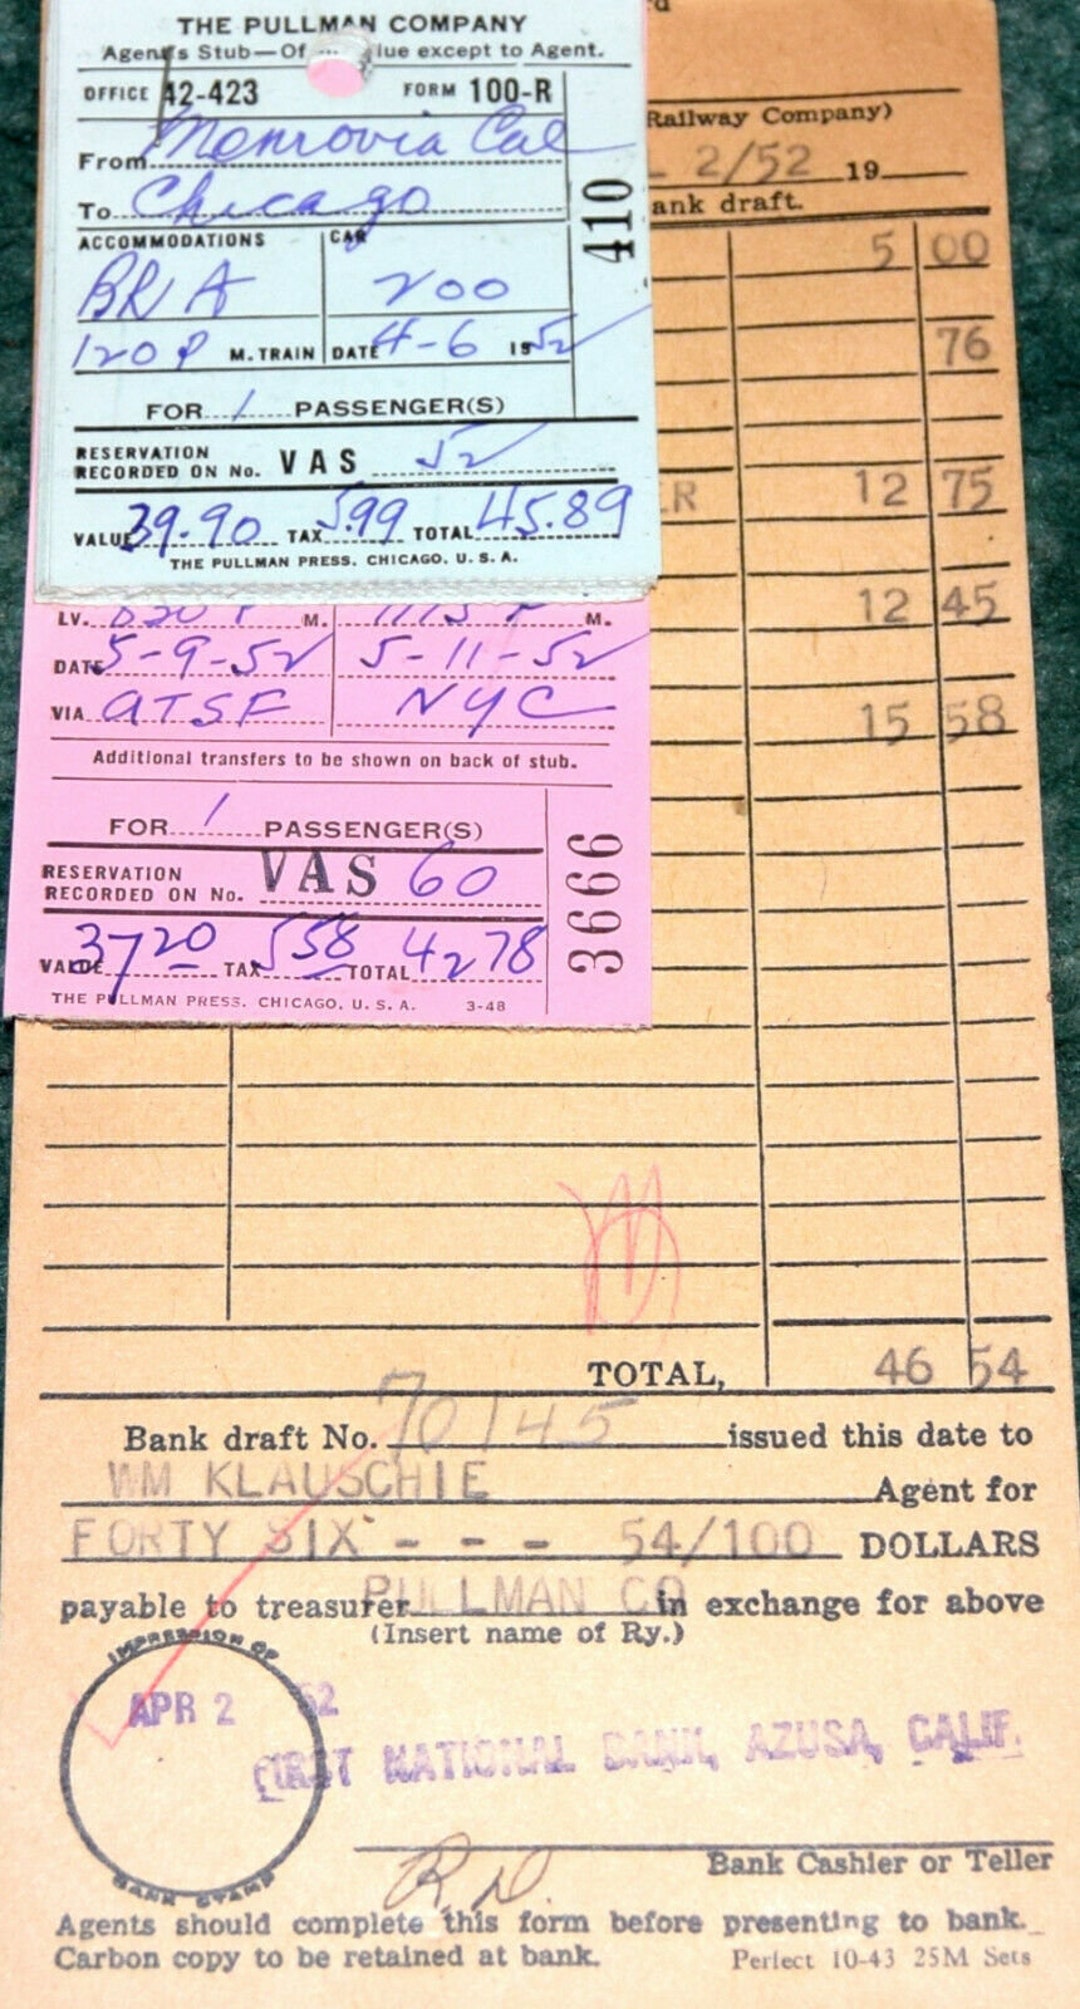 THE PULLMAN COMPANY
Agent's Stub—Of lue except to Agent.
OFFICE 42-423 FORM 100-R
From Monrovia Cal
To Chicago
410
ACCOMMODATIONS CAR
BR A 200
120 P M. TRAIN DATE 4-6 1952
FOR 1 PASSENGER(S)
RESERVATION
RECORDED ON No. VAS 52
VALUE 39.90 TAX 5.99 TOTAL 45.89
THE PULLMAN PRESS, CHICAGO, U. S. A.
LV. M. M.
DATE 5-9-52 5-11-52
VIA ATSF NYC
Additional transfers to be shown on back of stub.
FOR 1 PASSENGER(S)
RESERVATION
RECORDED ON No. VAS 60
3666
VALUE 37 20 TAX 5 58 TOTAL 42 78
THE PULLMAN PRESS, CHICAGO, U. S. A. 3-48
Railway Company)
2/52 19
ank draft.
5 00
76
R 12 75
12 45
15 58
TOTAL, 46 54
Bank draft No. 70145 issued this date to
WM KLAUSCHIE Agent for
FORTY SIX - - - 54/100 DOLLARS
payable to treasurer PULLMAN CO in exchange for above
(Insert name of Ry.)
IMPRESSION OF
APR 2 52
FIRST NATIONAL BANK, AZUSA, CALIF.
BANK STAMP
R.D.
Bank Cashier or Teller
Agents should complete this form before presenting to bank.
Carbon copy to be retained at bank. Perfect 10-43 25M Sets